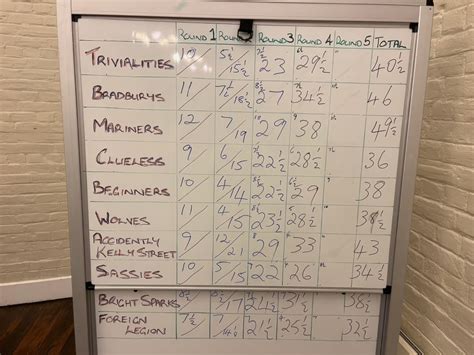 ROUND 1 ROUND ROUND 3 ROUND 4 ROUND 5 TOTAL
TRIVIALITIES 10 5½ 15½ 23 29½ 40½
BRADBURYS 11 7½ 18½ 27 34½ 46
MARINERS 12 7 19 29 38 49½
CLUELESS 9 6 15 22½ 28½ 36
BEGINNERS 10 4 14 22½ 29 38
WOLVES 11 4 15 23½ 28½ 38½
ACCIDENTLY
KELLY STREET 9 12 21 29 33 43
SASSIES 10 5 15 22 26 34½
BRIGHT SPARKS 17 24½ 31½ 38½
FOREIGN
LEGION 7½ 7 21½ 25½ 32½